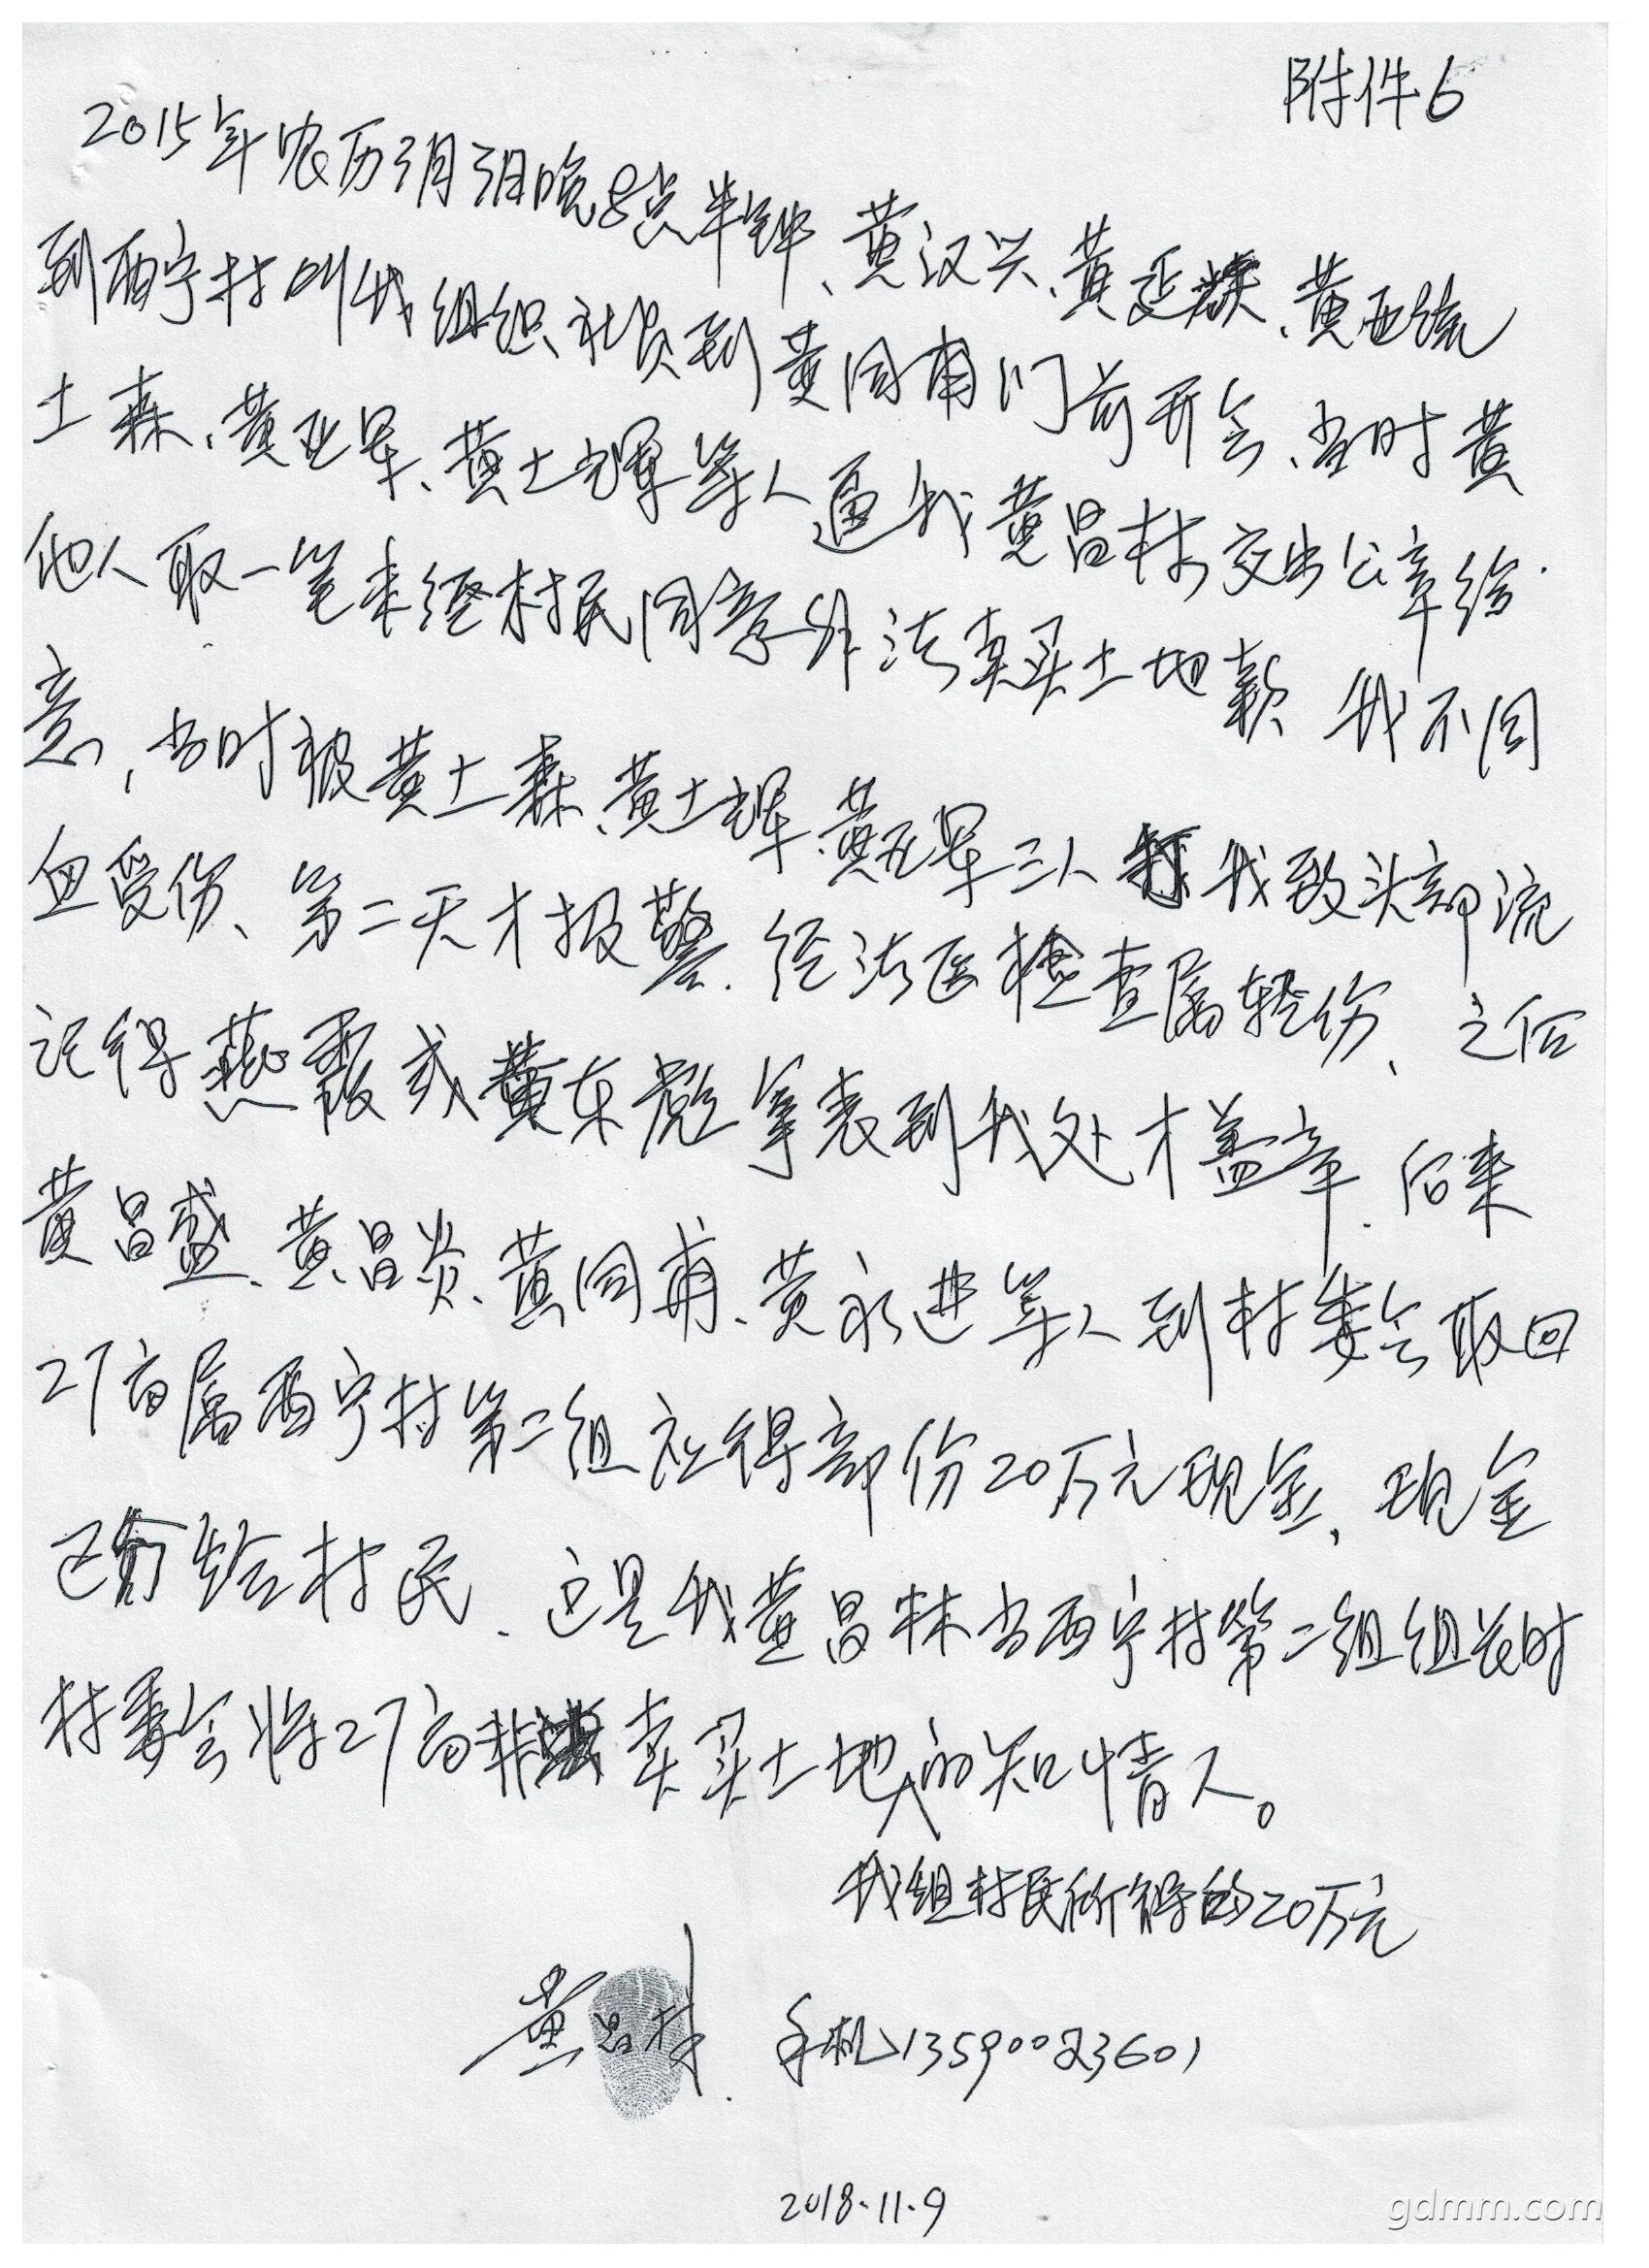 附件6
2015年农历3月3日晚8点半钟、黄汉兴、黄延、黄亚
到西宁村叫我组织社员到黄同甫门前开会、当时黄
土森、黄亚军、黄土辉等人逼我黄昌林交出公章给
他人取一笔未经村民同意非法卖买土地款 我不同
意，当时被黄土森、黄土辉、黄亚军三人打我致头部流
血受伤、第二天才报警.经法医检查属轻伤、之后
记得燕霞或黄东彪拿表到我处才盖章.后来
黄昌盛、黄昌炎、黄同甫、黄永进等人到村委会取回
27亩属西宁村第二组应得部份20万元现金、现金
已分给村民.这是我黄昌林当西宁村第二组组长时
村委会将27亩非法卖买土地的知情人。
我组村民所得的20万元
黄昌林 手机13590023601
2018.11.9
gdmm.com